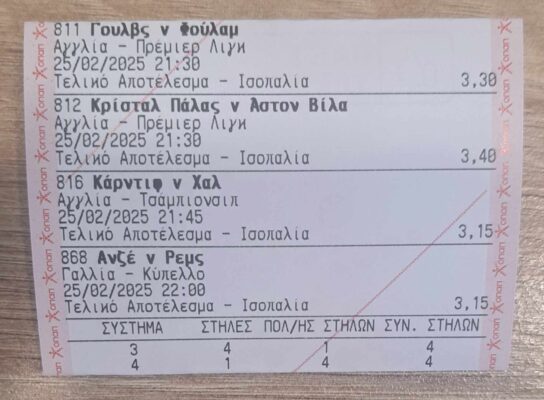 811 Γουλβς v Φούλαμ
Αγγλία - Πρέμιερ Λιγκ
25/02/2025 21:30
Τελικό Αποτέλεσμα - Ισοπαλία 3,30
812 Κρίσταλ Πάλας v Άστον Βίλα
Αγγλία - Πρέμιερ Λιγκ
25/02/2025 21:30
Τελικό Αποτέλεσμα - Ισοπαλία 3,40
816 Κάρντιφ v Χαλ
Αγγλία - Τσάμπιονσιπ
25/02/2025 21:45
Τελικό Αποτέλεσμα - Ισοπαλία 3,15
868 Ανζέ v Ρεμς
Γαλλία - Κύπελλο
25/02/2025 22:00
Τελικό Αποτέλεσμα - Ισοπαλία 3,15
ΣΥΣΤΗΜΑ ΣΤΗΛΕΣ ΠΟΛ/ΗΣ ΣΤΗΛΩΝ ΣΥΝ. ΣΤΗΛΩΝ
3 4 1 4
4 1 4 4
οπαπ